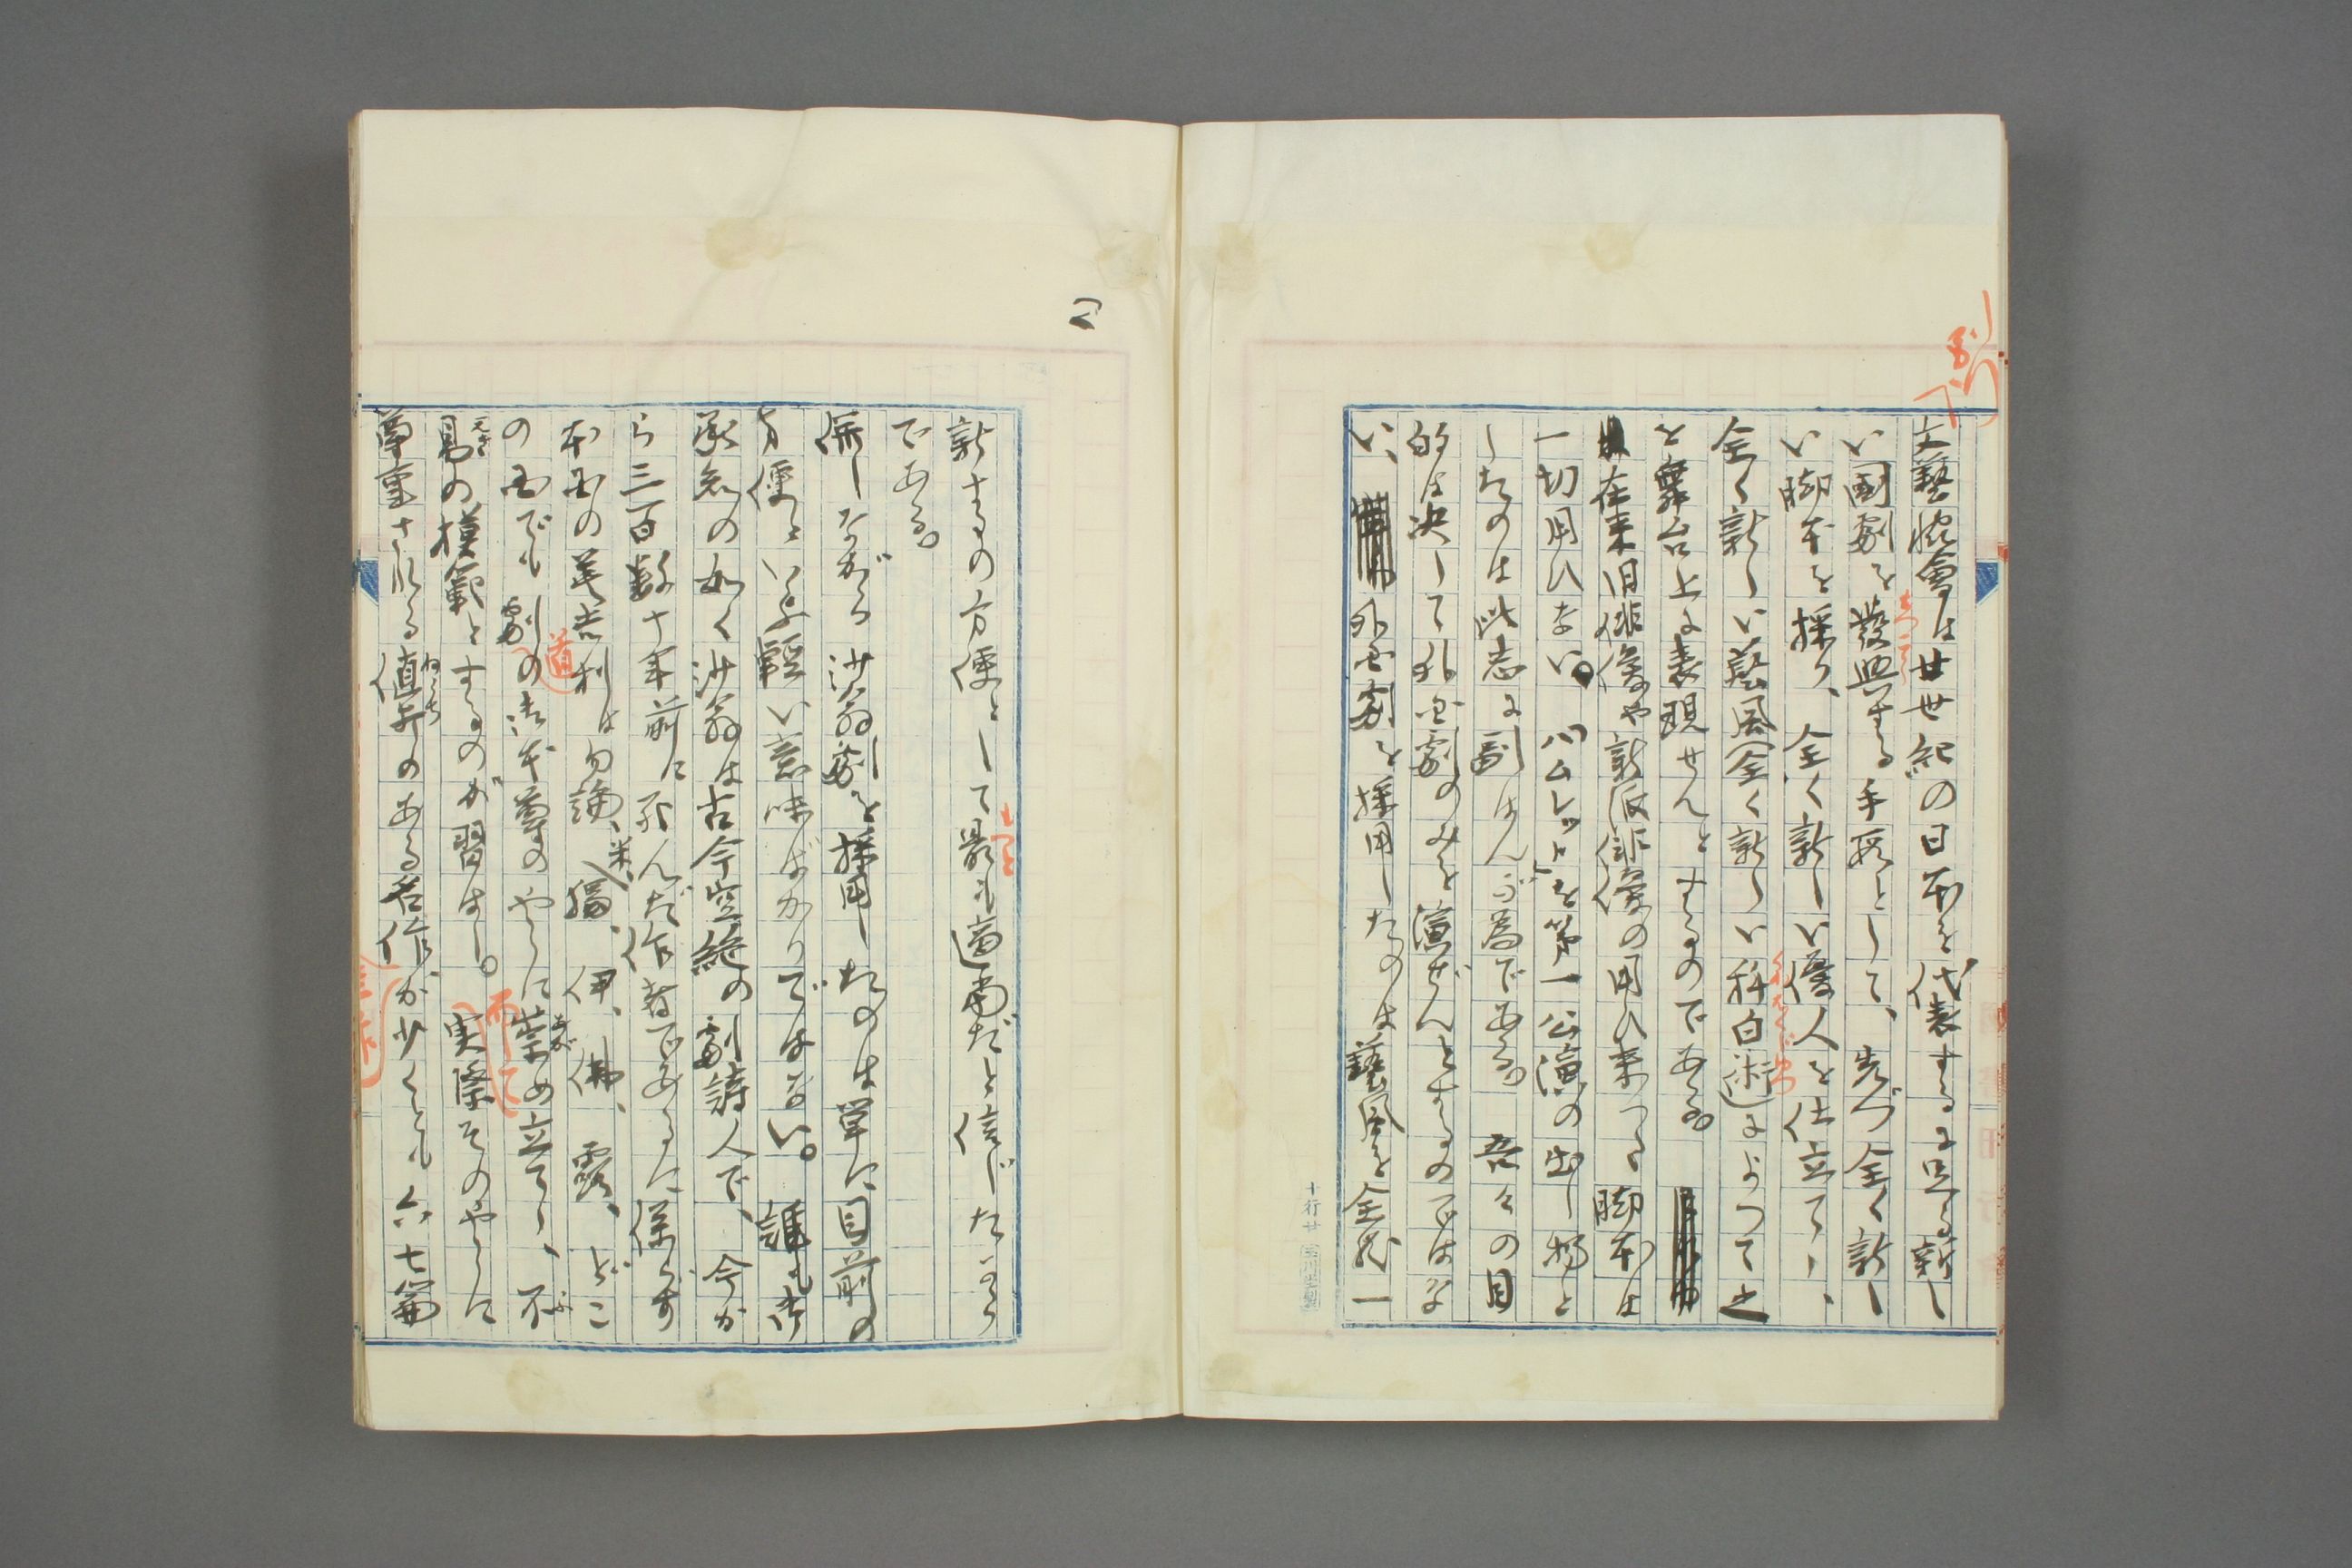 文藝協會は廿世紀の日本を代表するに足る新し
い國劇を發興する手段として、先づ全く新し
い脚本を採り、全く新しい優人を仕立てゝ、
全く新しい藝風(全く新しい科白術)によつて之
を舞台上に表現せんとするのである。
在来旧俳優や新派俳優の用ひ来つた脚本は
一切用ひない。ハムレットを第一公演の出し物と
したのは此志に副はんが為である。吾々の目
的は決して外国劇のみを演ぜんとするのではな
い、外国劇を採用したのは藝風を全然一
新するの方便として最も適当だと信じたから
である。
併しながら沙翁劇を採用したのは単に目前の
方便といふ軽い意味ばかりではない。誰も御
承知の如く沙翁は古今空絶の劇詩人で、今か
ら三百数十年前に死んだ作者であるに係らず
本国の英吉利は勿論、米、獨、伊、佛、露、どこ
の国でも劇道の御本尊のやうに崇め立てゝ、不
易の模範とするのが習はし。実際そのやうに
尊重される値打のある名作が少くとも六七篇